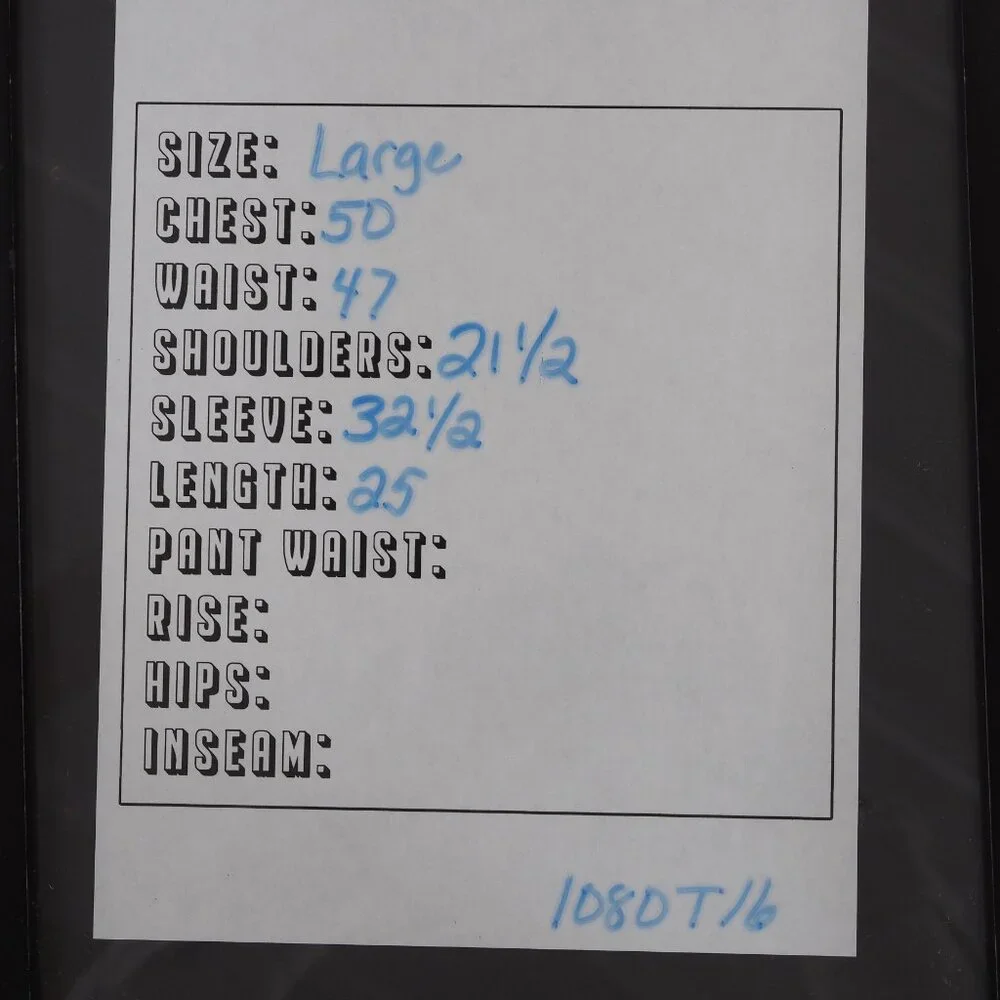 SIZE: Large
CHEST: 50
WAIST: 47
SHOULDERS: 21 1/2
SLEEVE: 32 1/2
LENGTH: 25
PANT WAIST:
RISE:
HIPS:
INSEAM:
1080T16